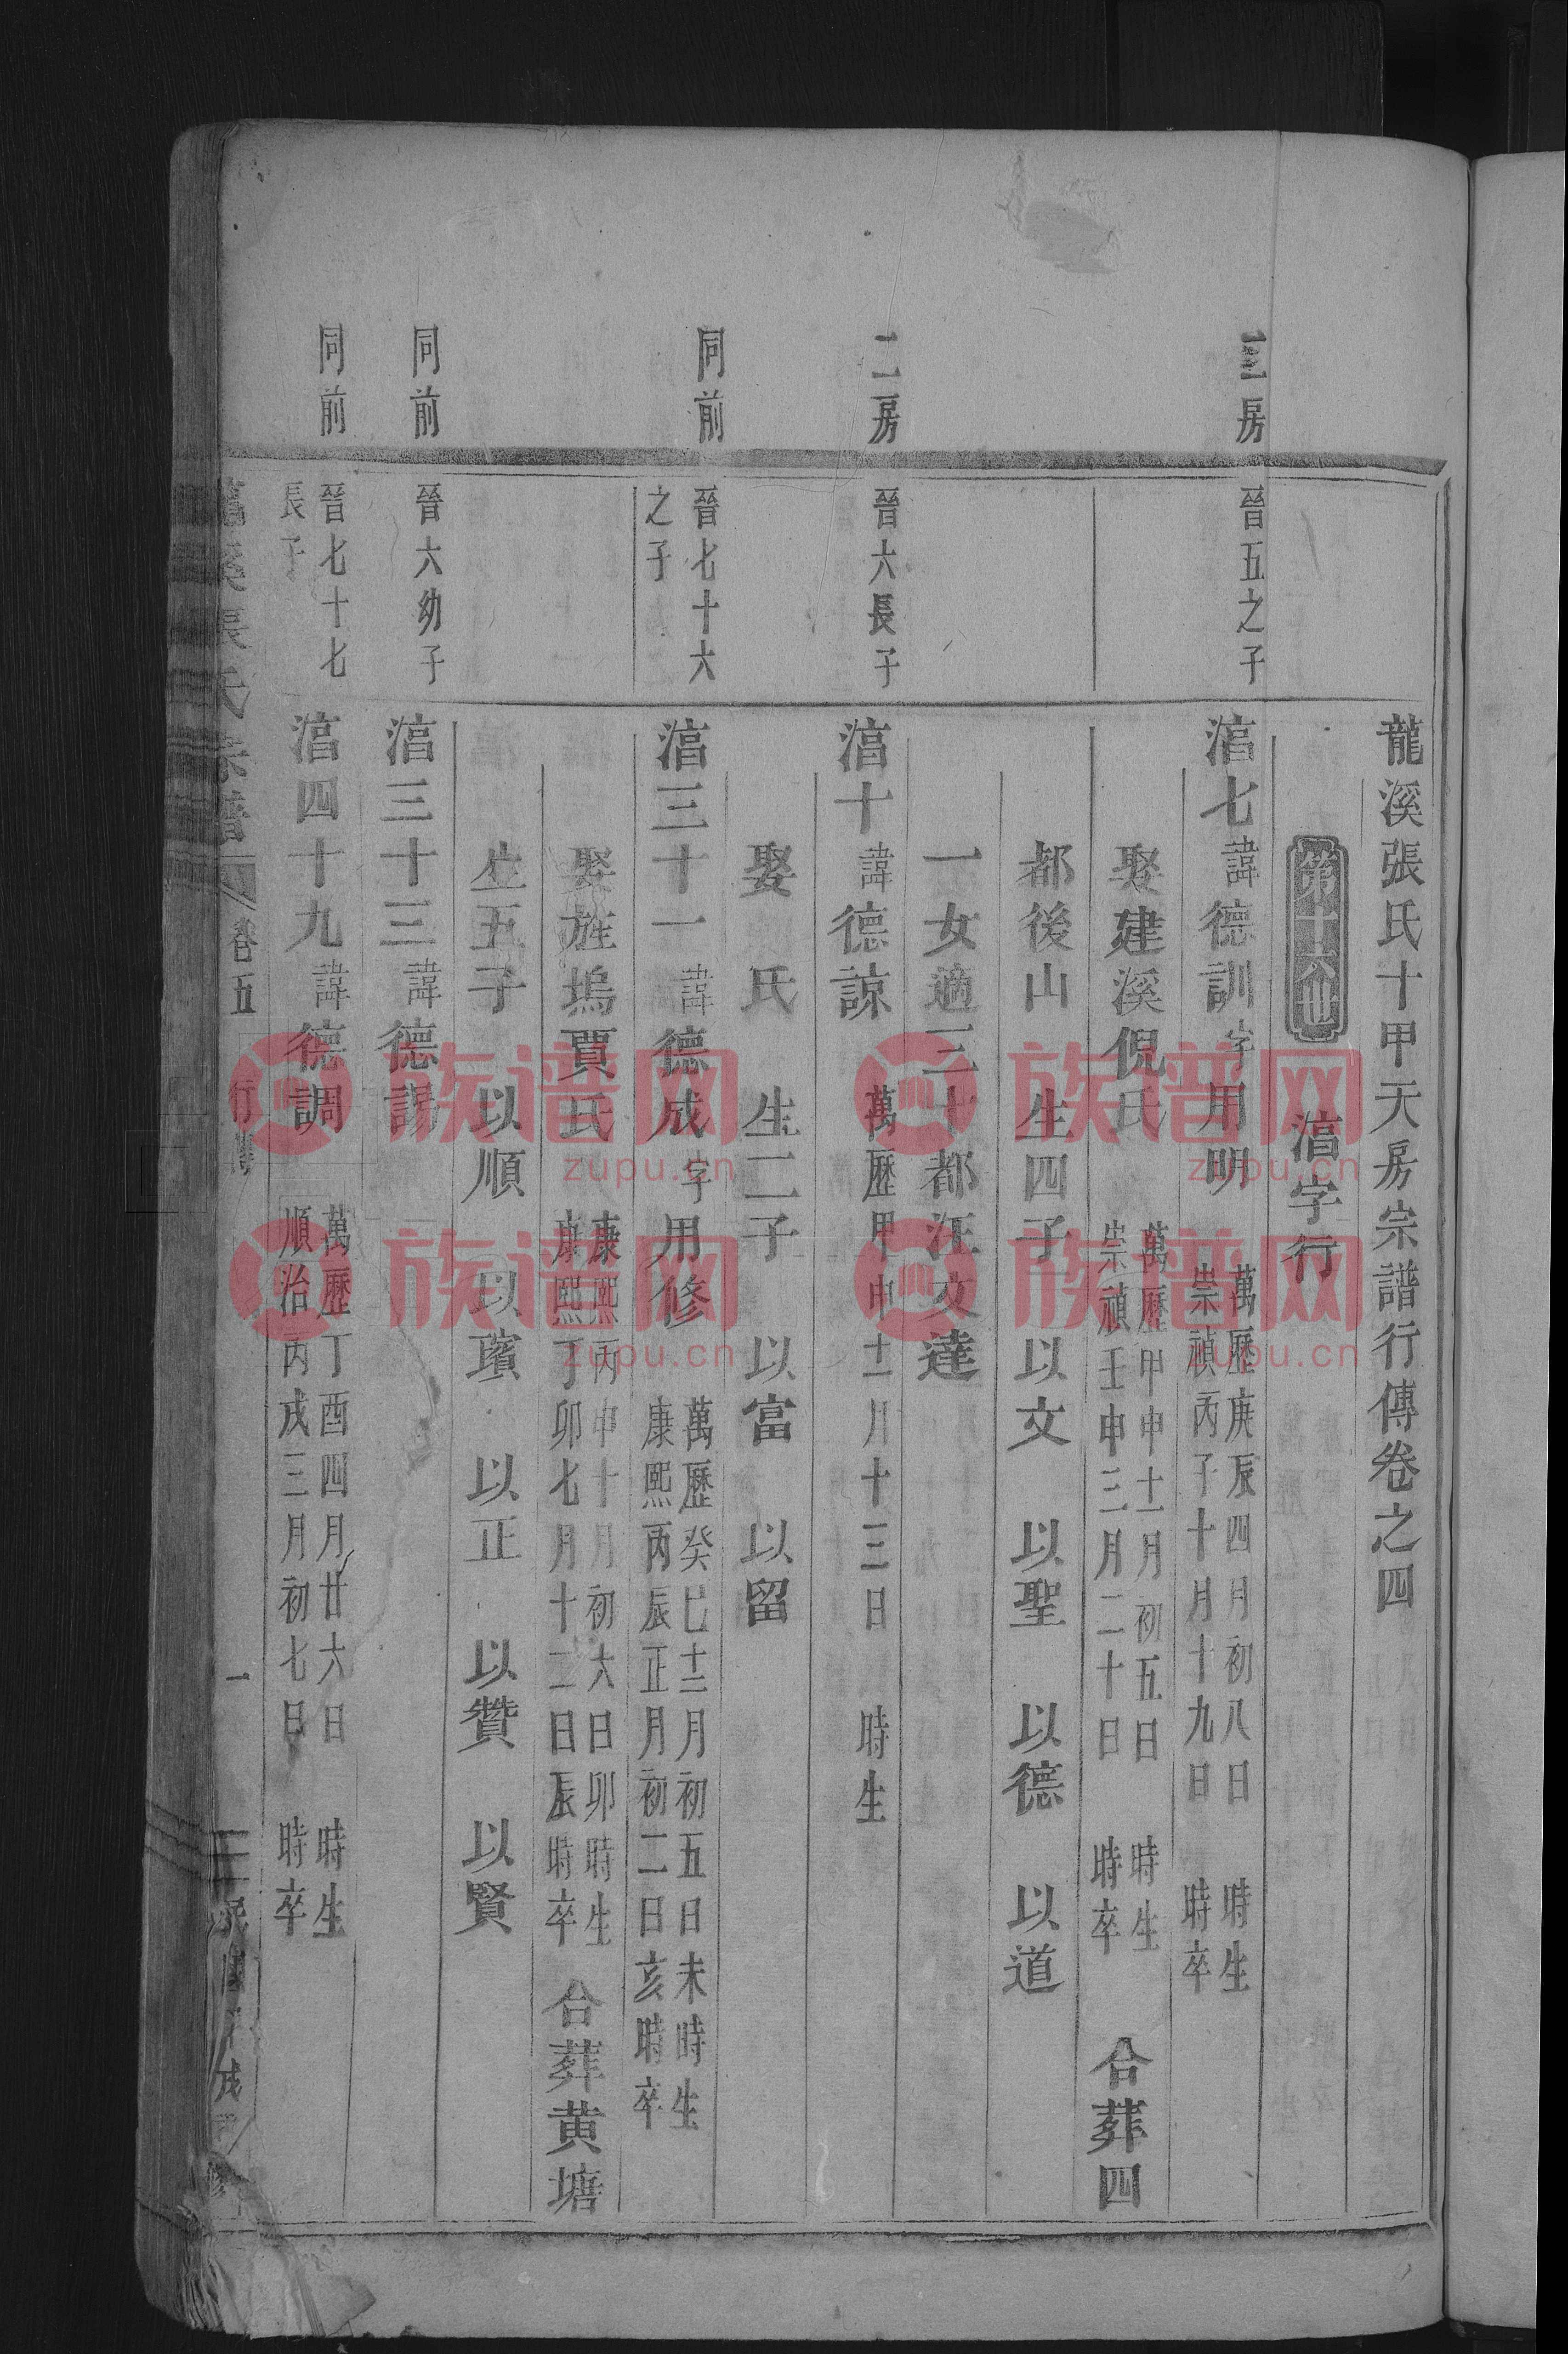 龍溪張氏十甲天房宗譜行傳卷之四
第十六世
湻字行
三房
晉五之子
湻七諱德訓字用明
萬歷庚辰四月初八日 時生
崇禎丙子十月十九日 時卒
娶建溪倪氏
萬歷甲申十一月初五日 時生
崇禎壬申三月二十日 時卒
合葬四
都後山 生四子 以文 以聖 以德 以道
一女適三十都汪文達
二房
晉六長子
湻十諱德諒
萬歷甲申十一月十三日 時生
娶 氏 生二子 以富 以留
同前
晉七十六
之子
湻三十一諱德成字用修
萬歷癸巳十二月初五日未時生
康熙丙辰正月初二日亥時卒
娶旌塢賈氏
康熙丙申十月初六日卯時生
康熙丁卯七月十二日辰時卒
合葬黄塘
生五子 以順 以璸 以正 以贊 以賢
同前
晉六幼子
湻三十三諱德謁
同前
晉七十七
長子
湻四十九諱德調
萬歷丁酉四月廿六日 時生
順治丙戌三月初七日 時卒
張氏宗譜
卷五
行傳
一
族谱网
zupu.cn
族谱网
zupu.cn
族谱网
zupu.cn
族谱网
zupu.cn